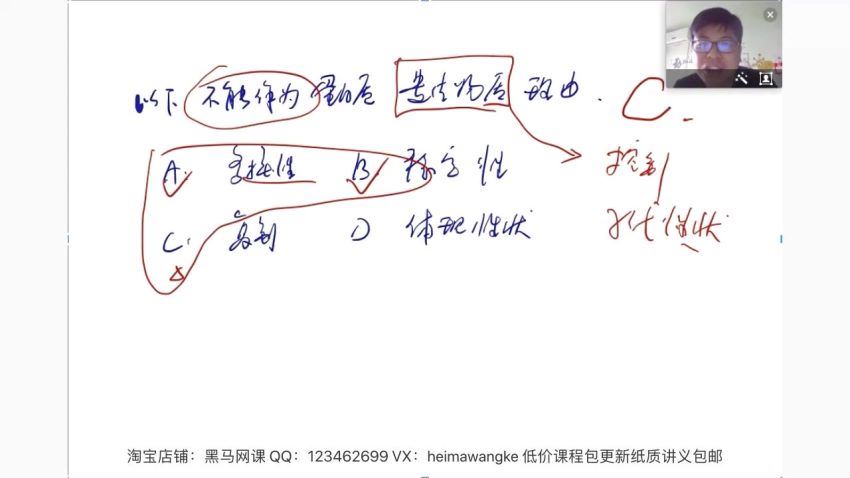 以下 不能作为 蛋白质 遗传物质 理由. C.
A. 多样性 B 稳定性 控制
C. 复制 D 体现性状 子代性状
淘宝店铺：黑马网课 QQ：123462699 VX：heimawangke 低价课程包更新纸质讲义包邮